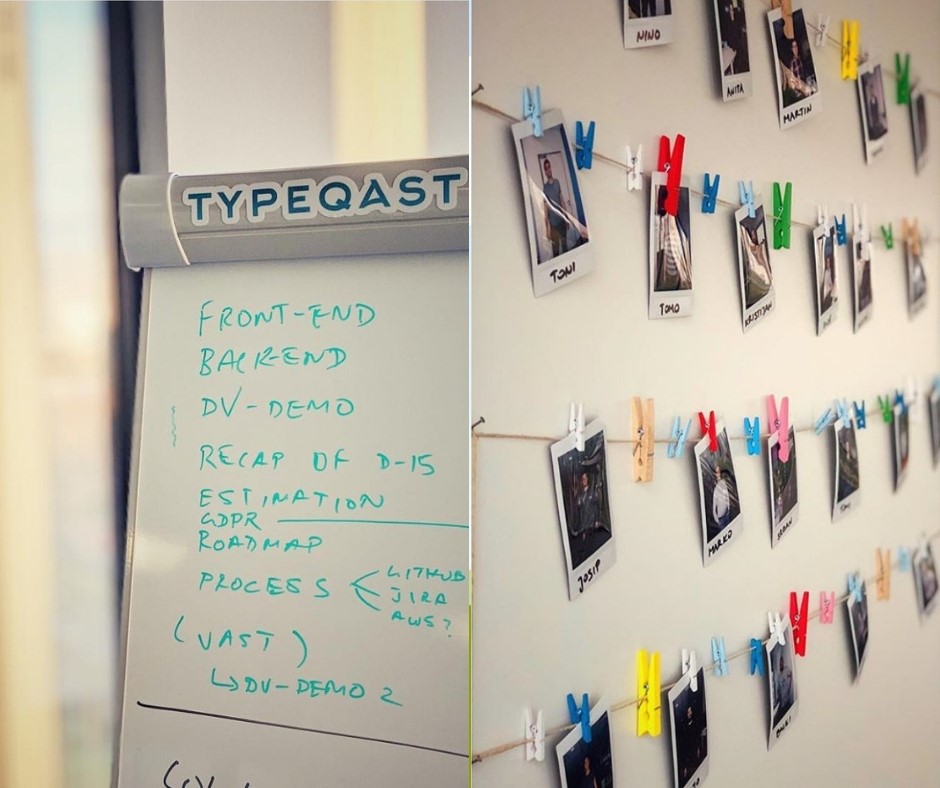 TYPEQAST
FRONT-END
BACK-END
DV-DEMO
RECAP OF D-15
ESTIMATION
GDPR
ROADMAP
PROCESS
GITHUB
JIRA
AWS?
(VAST)
↳DV-DEMO 2
NINO
ANITA
MARTIN
TONI
TOMO
KRISTIJAN
JOSIP
MARKO